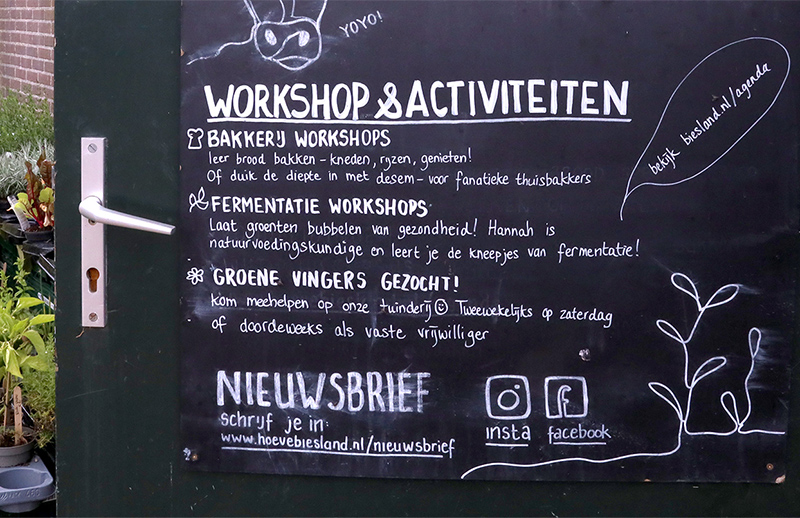 YOYO!
WORKSHOP & ACTIVITEITEN
bekijk biesland.nl/agenda
BAKKERIJ WORKSHOPS
leer brood bakken - kneden, rijzen, genieten!
Of duik de diepte in met desem - voor fanatieke thuisbakkers
FERMENTATIE WORKSHOPS
Laat groenten bubbelen van gezondheid! Hannah is
natuurvoedingskundige en leert je de kneepjes van fermentatie!
GROENE VINGERS GEZOCHT!
kom meehelpen op onze tuinderij ☺ Tweewekelijks op zaterdag
of doordeweeks als vaste vrijwilliger
NIEUWSBRIEF
schrijf je in:
www.hoevebiesland.nl/nieuwsbrief
insta
facebook